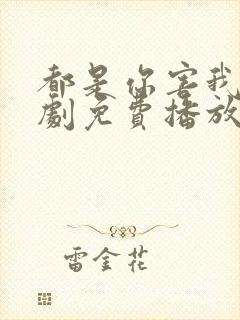 都是你害我
劇免費播放
雷金花